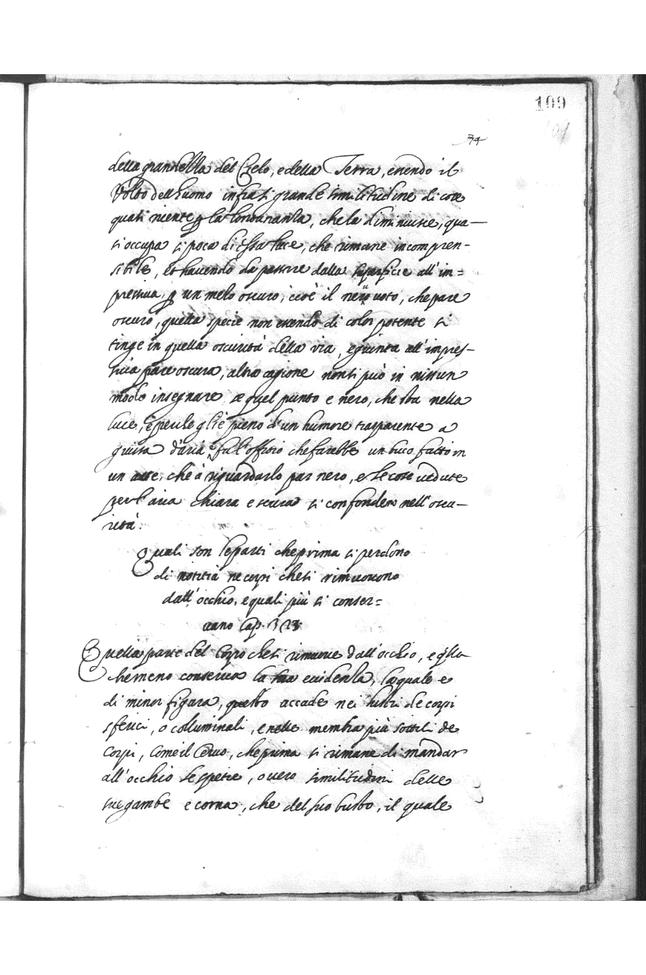 109
74
della grandezza del Cielo, e della Terra, essendo il
Volto dell'huomo infrà sì grande similitudine di cose
quasi niente p la lontananza, che la diminuisce, qua–
si occupa sì poca di essa luce, che rimane incompren–
sibile, et havendo da passare dalla superficie all'im=
pressiva p un mezo oscuro, cioè il nervo voto, che pare
oscuro, quella specie non essendo di color potente si
tinge in quella oscurità della via, e giunta all'impres–
siva pare oscura, altra cagione non si può in nissun
modo insegnare quel punto e nero, che sta nella
luce, è perche gli è pieno d'un humore trasparente a
guisa d'aria, e fà l'offitio che farebbe un buco fatto in
un asse, che à riguardarlo par nero, e le cose vedute
per l'aria chiara e scura si confondeno nell'oscu–
rità:
Quali son le parti che prima si perdono
di notitia ne corpi che si rimuovono
dall'occhio, e quali più si conser=
vano Cap.
Quella parte del Corpo che si rimuove dall'occhio, e qlla
che meno conserva la sua evidenza, la quale e
di minor figura, questo accade nei lustri de corpi
sferici, o colluminali, e nelle membra più sottili de
corpi, come il Cervo, che prima si rimane di mandar
all'occhio le spetie, overo similitudini delle
sue gambe e corna, che del suo busto, il quale